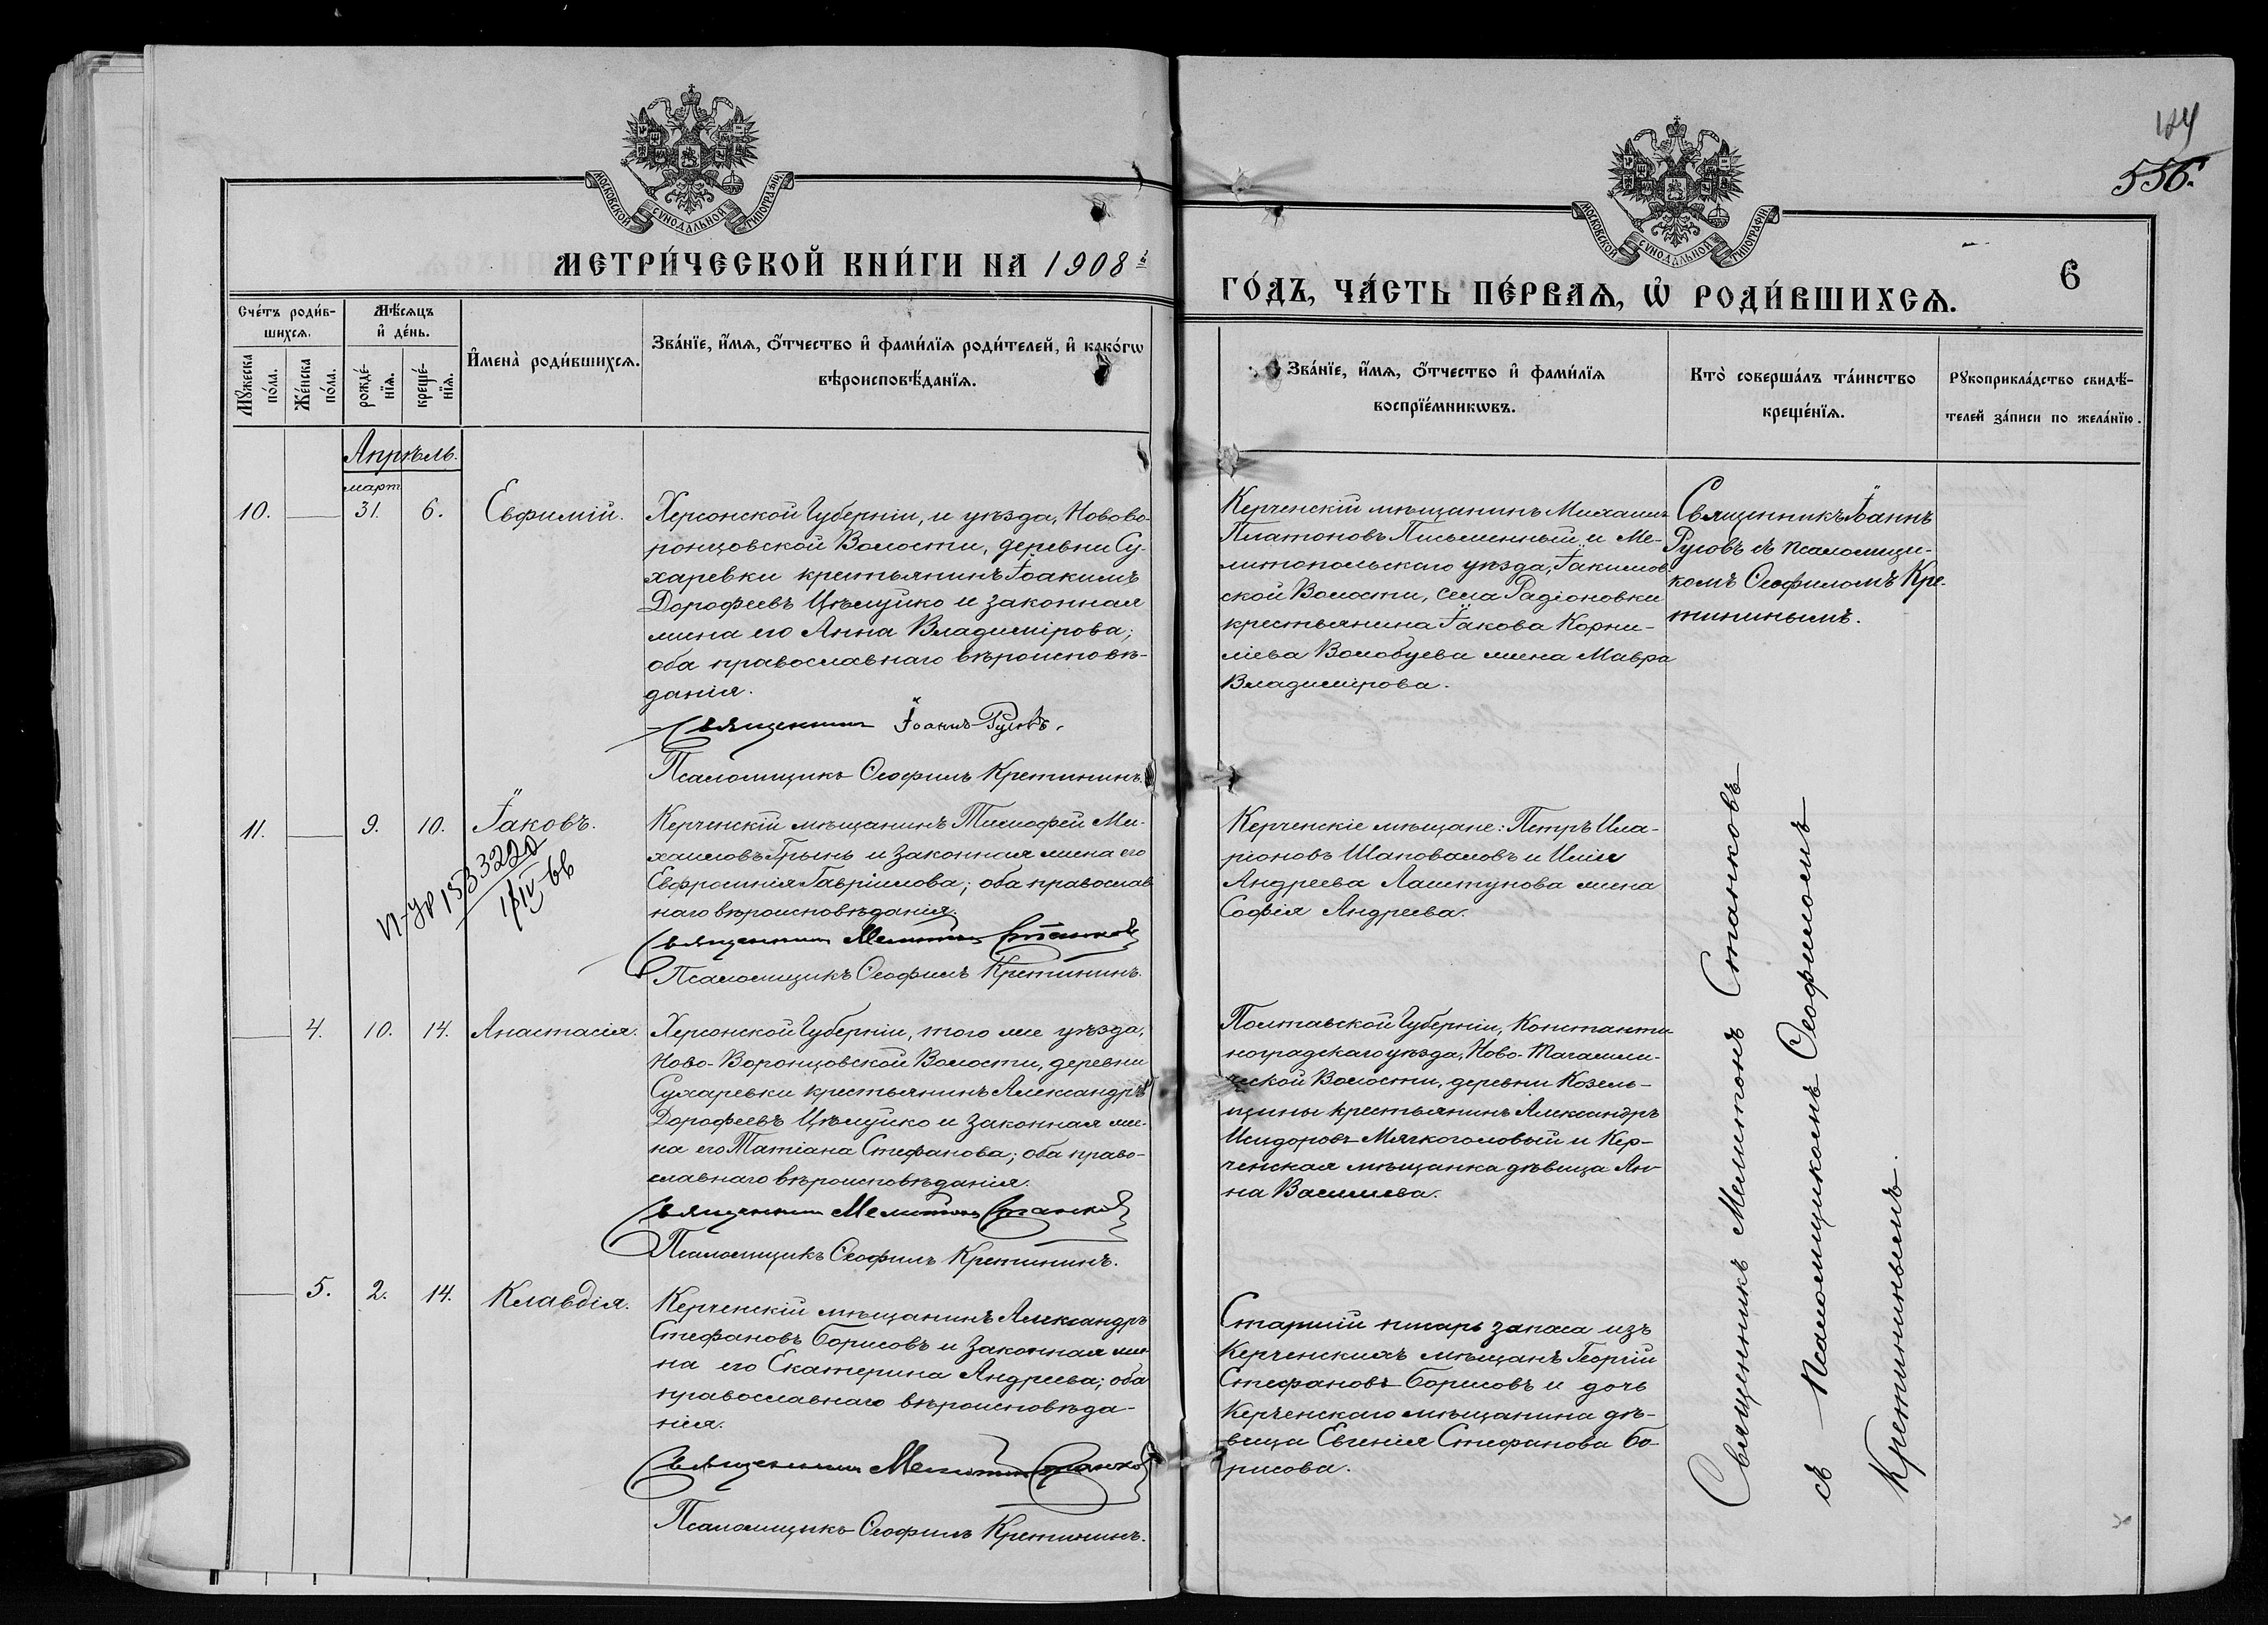 124
556.
МОСКОВСКОЙ СѴНОДАЛЬНОЙ ТИПОГРАФІИ
МОСКОВСКОЙ СѴНОДАЛЬНОЙ ТИПОГРАФІИ
МЕТРИ́ЧЕСКОЙ КНИ́ГИ НА 1908 й
ГО́ДЪ, ЧА́СТЬ ПЕ́РВАѦ, Ѡ҆ РОДИ́ВШИХСѦ.
6
Сче́тъ роди́в-
шихсѧ.
Мꙋжеска по́ла.
Же́нска по́ла.
Мѣ́сѧцъ
и҆ де́нь.
рожде́-
нїѧ.
креще́-
нїѧ.
И҆мена̀ роди́вшихсѧ.
Зва́нїе, и҆́мѧ, ѻ҆́тчество и҆ фами́лїѧ роди́телей, и҆ како́гѡ
вѣроисповѣ́данїѧ.
Зва́нїе, и҆́мѧ, ѻ҆́тчество и҆ фами́лїѧ
воспрїе́мникѡвъ.
Кто̀ соверша́лъ та́инство
креще́нїѧ.
Рꙋкоприкла́дство свидѣ́-
телей за́писи по жела́нїю.
Апрѣль.
март
10.
31.
6.
Евфимій.
Херсонской Губерніи, и уѣзда, Новово-
ронцовской Волости, деревни Су-
харевки крестьянинъ Іоакимъ
Дорофеевъ Цѣлуйко и законная
жена его Анна Владимірова;
оба православнаго вѣроисповѣ-
данія.
Священникъ Іоаннъ Русовъ.
Псаломщикъ Ѳеофилъ Кретининъ.
Керченскій мѣщанинъ Михаилъ
Платоновъ Письменный и Ме-
литопольскаго уѣзда, Іакимов-
ской Волости, села Радіоновки
крестьянина Іакова Корни-
ліева Волобуева жена Мавра
Владимірова.
Священникъ Іоаннъ
Русовъ съ псаломщи-
комъ Ѳеофиломъ Кре-
тининымъ.
11.
9.
10.
Іаковъ.
Керченскій мѣщанинъ Тимофей Ми-
хаиловъ Грынь и законная жена его
Евфросинія Гавріилова; оба православ
наго вѣроисповѣданія.
Священникъ Мелитонъ Станковъ
Псаломщикъ Ѳеофилъ Кретининъ.
Керченскіе мѣщане: Петръ Ила-
ріоновъ Шаповаловъ и Илія
Андреева Лаштунова жена
Софія Андреева.
4.
10.
14.
Анастасія.
Херсонской Губерніи, того же уѣзда,
Ново-Воронцовской Волости, деревни
Сухаревки крестьянинъ Александръ
Дорофеевъ Цѣлуйко и законная же-
на его Татіана Стефанова; оба право-
славнаго вѣроисповѣданія.
Священникъ Мелитонъ Станковъ
Псаломщикъ Ѳеофилъ Кретининъ.
Полтавской Губерніи, Константи-
ноградскаго уѣзда, Ново-Тагамли-
ческой Волости, деревни Козель-
щины крестьянинъ Александръ
Исидоровъ Мягкоголовый и Кер-
ченская мѣщанка дѣвица Ан-
на Василиева.
5.
2.
14.
Клавдія.
Керченскій мѣщанинъ Александръ
Стефановъ Борисовъ и законная же-
на его Екатерина Андреева; оба
православнаго вѣроисповѣда-
нія.
Священникъ Мелитонъ Станковъ
Псаломщикъ Ѳеофилъ Кретининъ.
Старшій писарь запаса изъ
Керченскихъ мѣщанъ Георгій
Стефановъ Борисовъ и дочь
Керченскаго мѣщанина дѣ-
вица Евгенія Стефанова Бо-
рисова.
Священникъ Мелитонъ Станковъ
съ Псаломщикомъ Ѳеофиломъ
Кретининымъ.